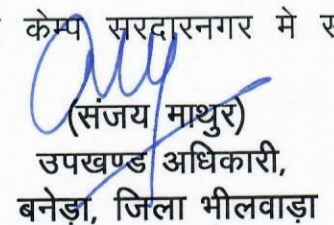 केम्प सरदारनगर मे
(संजय माथुर)
उपखण्ड अधिकारी,
बनेड़ा, जिला भीलवाड़ा